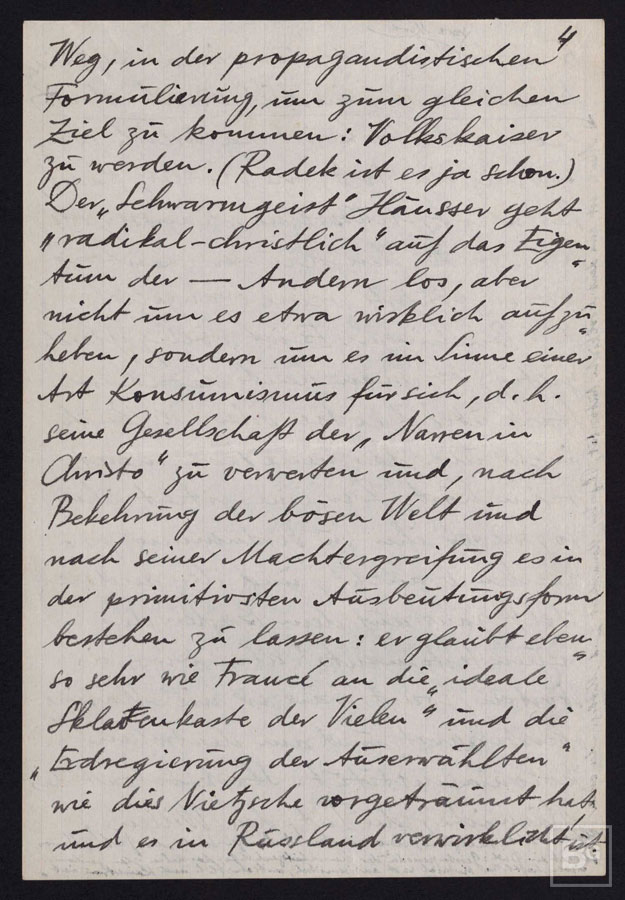 4
Weg, in der propagandistischen
Formulierung, um zum gleichen
Ziel zu kommen: Volkskaiser
zu werden. (Radek ist es ja schon.)
Der „Schwarmgeist“ Häusser geht
„radikal-christlich“ auf das Eigen„
tum der — Andern los, aber
nicht um es etwa wirklich aufzu„
heben, sondern um es im Sinne einer
Art Konsumismus für sich, d. h.
seine Gesellschaft der „Narren in
Christo“ zu verwerten und, nach
Bekehrung der bösen Welt und
nach seiner Machtergreifung es in
der primitivsten Ausbeutungsform
bestehen zu lassen: er glaubt eben„
so sehr wie Francé an die „ideale
Sklavenkaste der Vielen“ und die
„Erdregierung der Auserwählten“
wie dies Nietzsche vorgeträumt hat
und es in Russland verwirklicht ist.